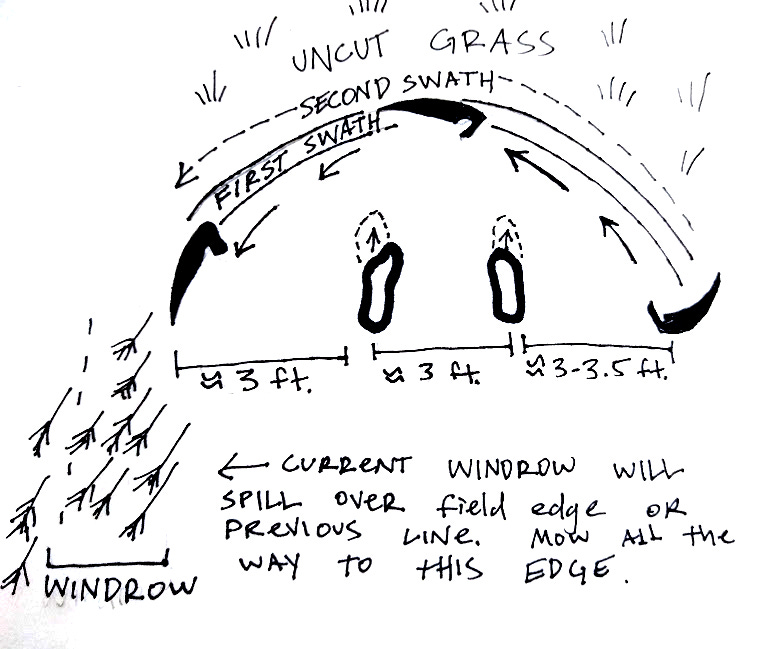 UNCUT GRASS
SECOND SWATH
FIRST SWATH
≈ 3 ft.
≈ 3 ft.
≈ 3-3.5 ft.
← CURRENT WINDROW WILL
SPILL OVER field edge OR
PREVIOUS LINE. MOW ALL the
WAY TO THIS EDGE.
WINDROW